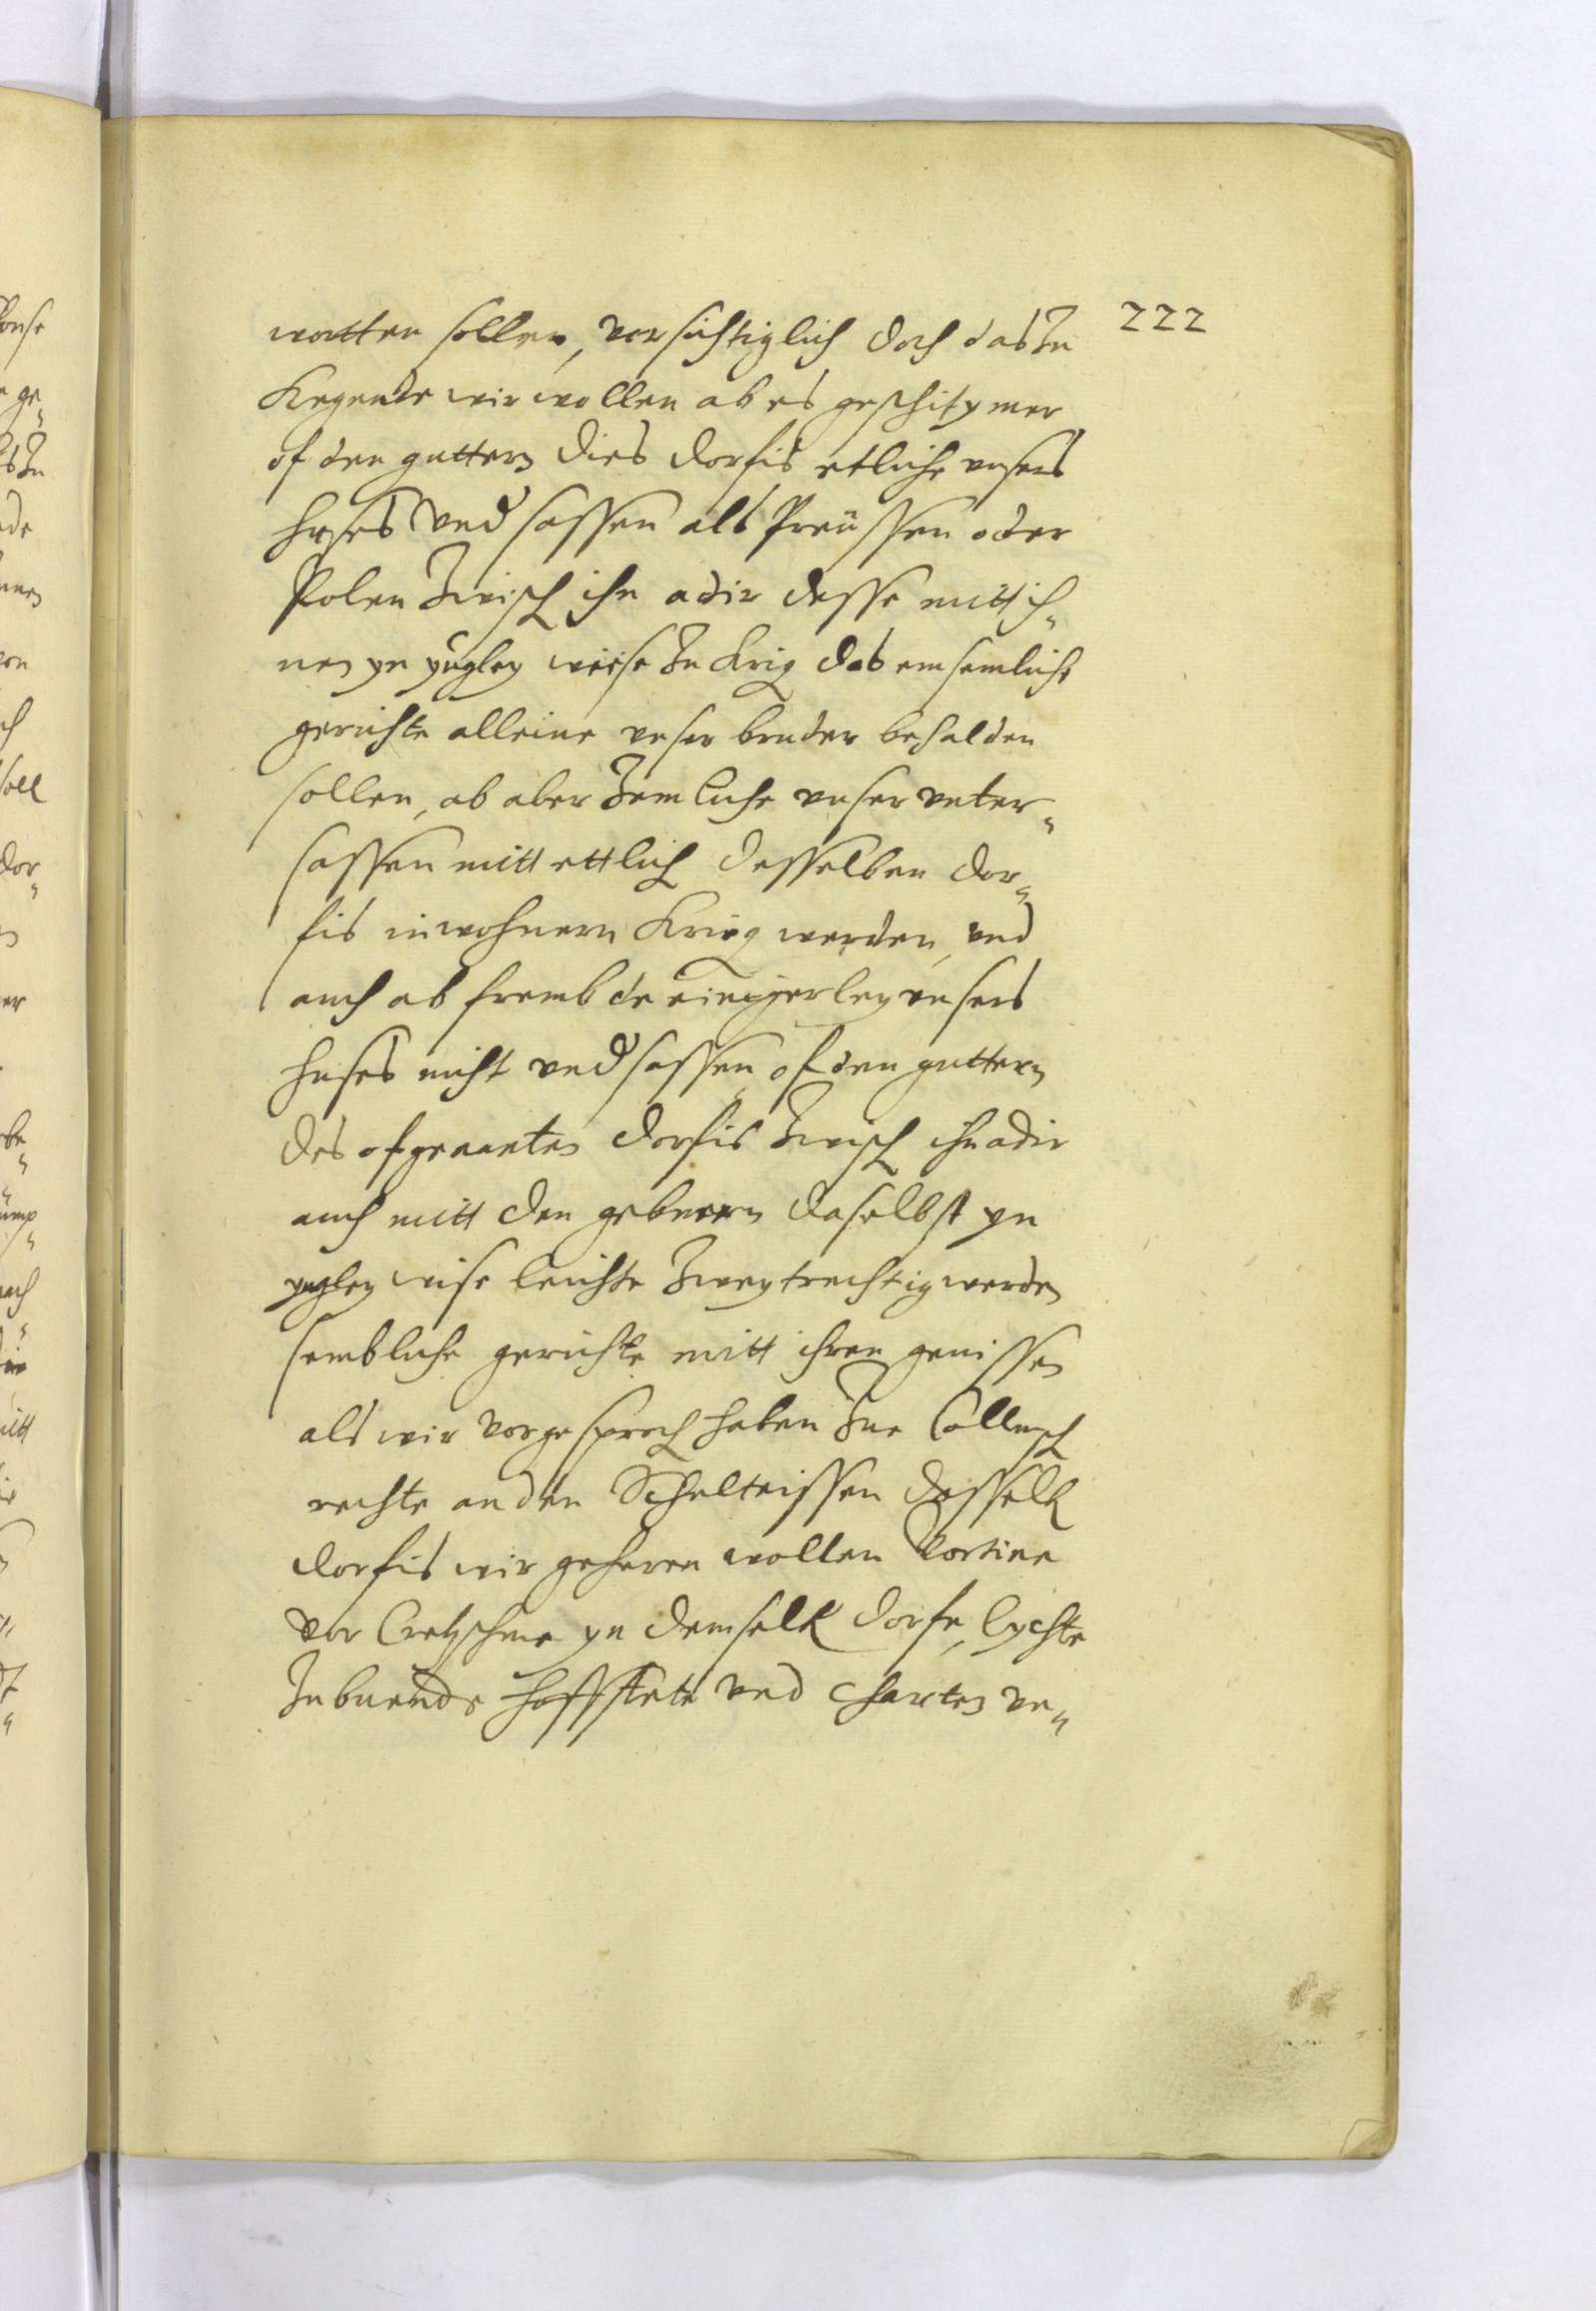 222
wortten sollen, vorsichtiglich doch das zu
Kegende wir wollen ab es geschit ymer
of den guttern dies dorfis etliche unsers
huses und sassen als Preüssen oder
Polen zwisch ihn adir desse mitt ih„
nen yn yugley weise zu krig das emsemliche
gerichte alleine unser bruder behalden
sollen, ab aber zemliche unser unter„
sassen mitt ettlich desselben dor„
fis inwohnern Krieg werden, und
auch ab frembde einigerley unsers
huses nicht und sassen of den guttern
des ofgenanten dorfis zwisch ihn adir
auch mitt den gebuern daselbst yn
yugley wise leichte zweytrechtig werden
sembliche gerichte mitt ihren genissen
als wir vorgesproch haben zue Collmsch
rechte an den Scholteissen desselb
dorfis wir geheren wollen Vortine
vor Cretzschme yn demselb dorfe, lychte
zu buende hoffstete und charten un„